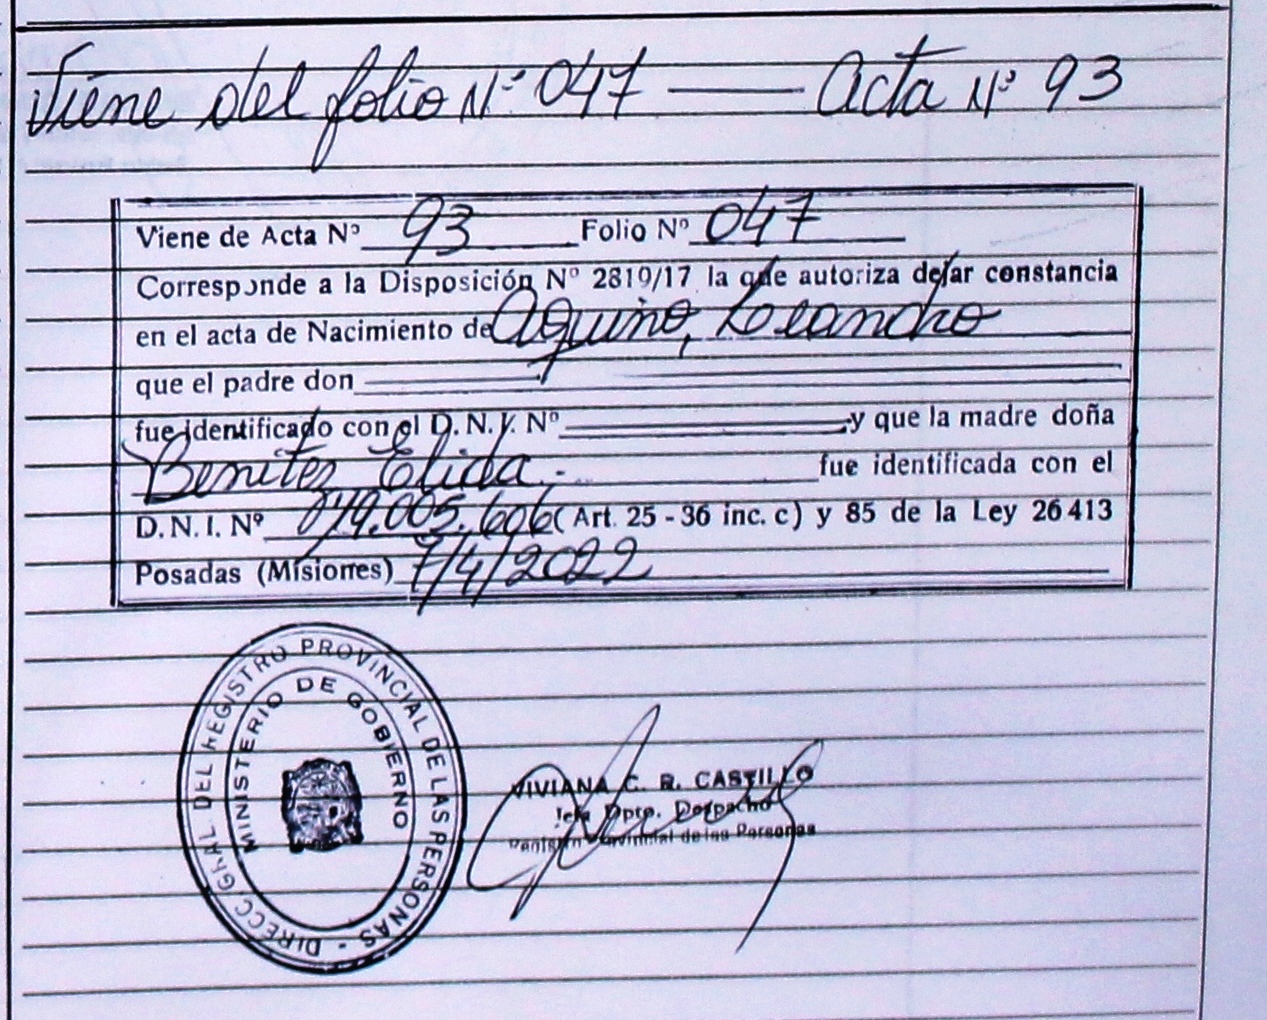 Viene del folio Nº 047 —— Acta Nº 93
Viene de Acta Nº 93 Folio Nº 047
Corresponde a la Disposición Nº 2819/17 la que autoriza dejar constancia
en el acta de Nacimiento de Aquino, Leandro
que el padre don
fue identificado con el D.N.I. Nº y que la madre doña
Benitez Elida.- fue identificada con el
D.N.I. Nº (Art. 25 - 36 inc. c) y 85 de la Ley 26413
Posadas (Misiones) 7/4/2022
DIRECC. GRAL. DEL REGISTRO PROVINCIAL DE LAS PERSONAS -
MINISTERIO DE GOBIERNO
VIVIANA C. R. CASTILLO
Jefa Dpto. Despacho
Registro Provincial de las Personas